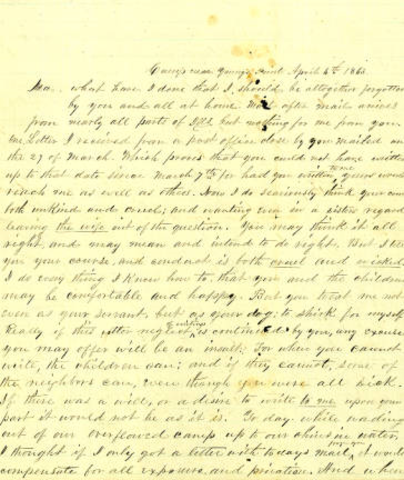 Camp near Young's Point April 6th 1863.
Ma, what have I done that I should be altogether forgotten
by you and all at home. Mail after mail arrives
from nearly all parts of Ills but nothing for me from you
one Letter I received from a post office close by you mailed on
the 27 of March. Which proves that you could not have written
up to that date since March 7th for had you written, yours would
reach me as well as others. Now I do seriously think your course
both unkind and cruel; and wanting even in a sisters regard
leaving the wife out of the question. You may think it all
right and may mean and intend to do right. But I tell
you your course, and conduct is both cruel and wicked.
I do every thing I know how to, that you and the children
may be comfortable and happy. But you treat me not
even as your servant, but as your dog; to shirk for myself
Really if this utter neglect is continued by you, any excuse
you may offer will be an insult; For where you cannot
write, the children can: and if they cannot, some of
the neighbors can, were though you were all sick.
If there was a will, or a desire to write to me upon your
part it would not be as it is. To day while wading
out of our overflowed camp up to our shins in water,
I thought if I only got a letter with to days mail, it would
compensate for all exposure and privation. And when